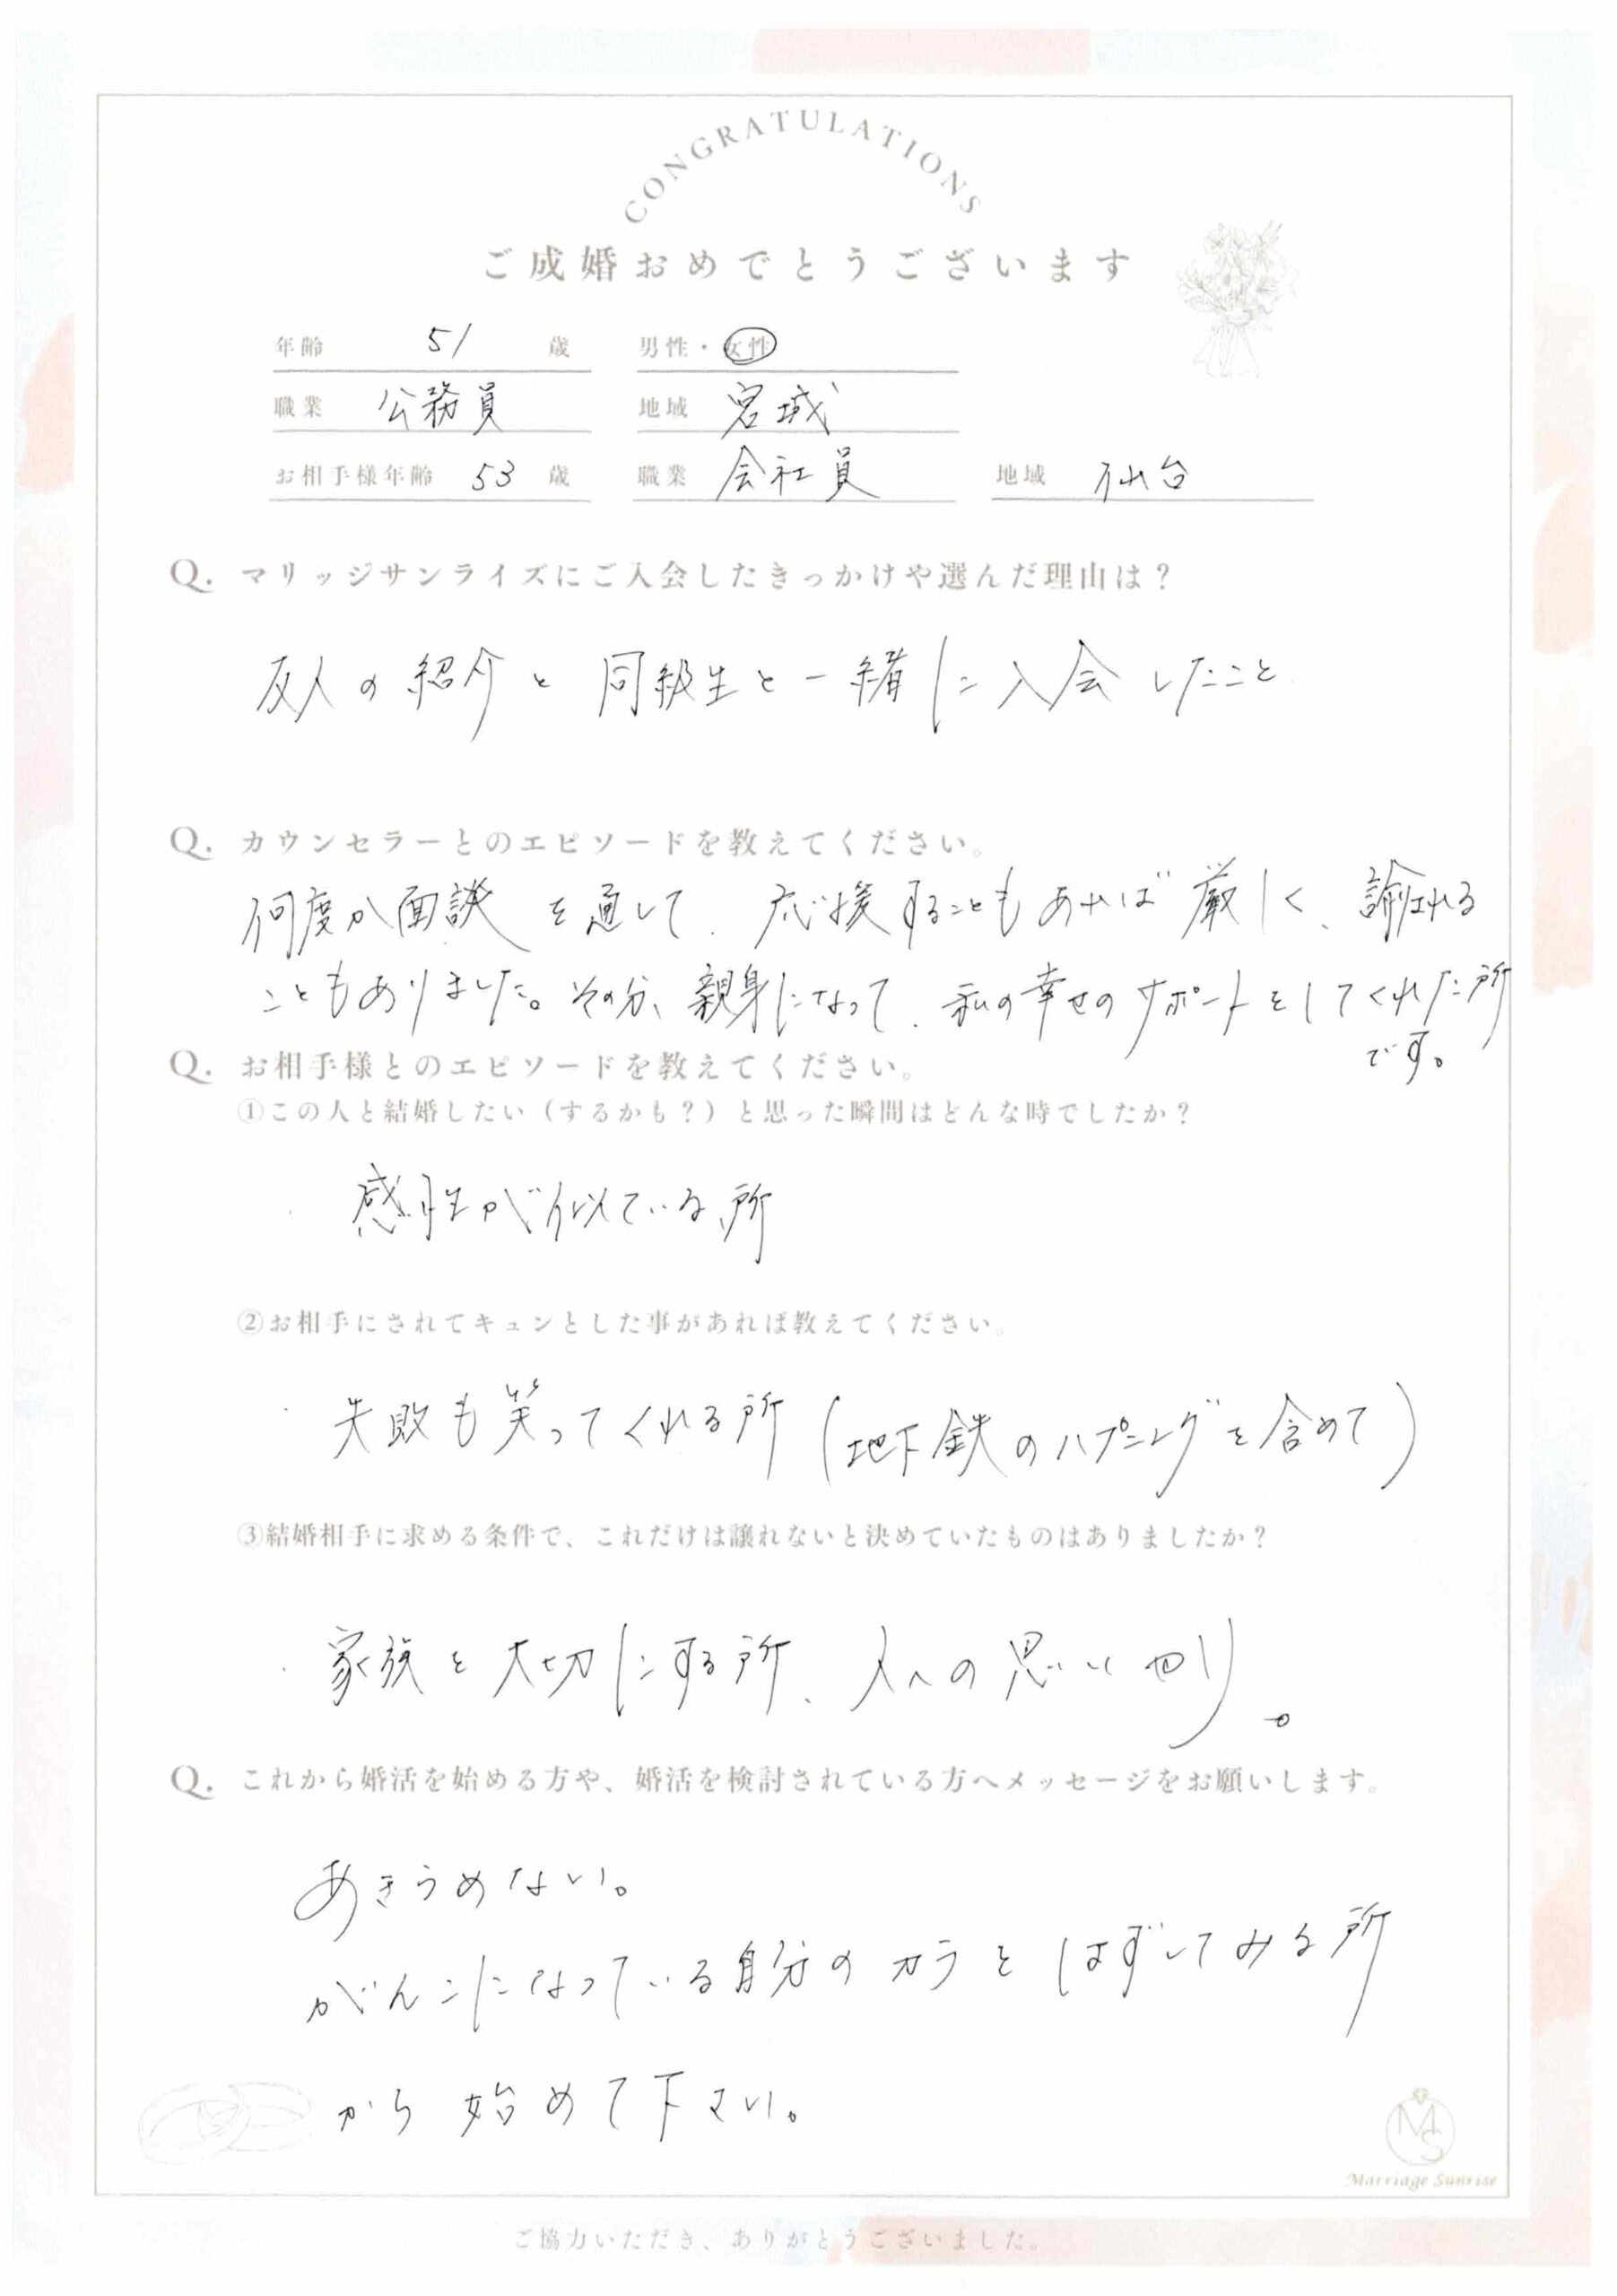 CONGRATULATIONS
ご成婚おめでとうございます
年齢 51 歳 男性・女性
職業 公務員 地域 宮城
お相手様年齢 53 歳 職業 会社員 地域 仙台
Q. マリッジサンライズにご入会したきっかけや選んだ理由は？
友人の紹介と同級生と一緒に入会したこと
Q. カウンセラーとのエピソードを教えてください。
何度か面談を通して、応援することもあれば厳しく、諭される
こともありました。その分、親身になって、私の幸せのサポートをしてくれた所
です。
Q. お相手様とのエピソードを教えてください。
①この人と結婚したい（するかも？）と思った瞬間はどんな時でしたか？
・感性が似ている所
②お相手にされてキュンとした事があれば教えてください。
・失敗も笑ってくれる所（地下鉄のハプニングを含めて）
③結婚相手に求める条件で、これだけは譲れないと決めていたものはありましたか？
・家族を大切にする所、人への思いやり。
Q. これから婚活を始める方や、婚活を検討されている方へメッセージをお願いします。
あきらめない。
がんこになっている自分のカラをはずしてみる所
から始めて下さい。
MS
Marriage Sunrise
ご協力いただき、ありがとうございました。